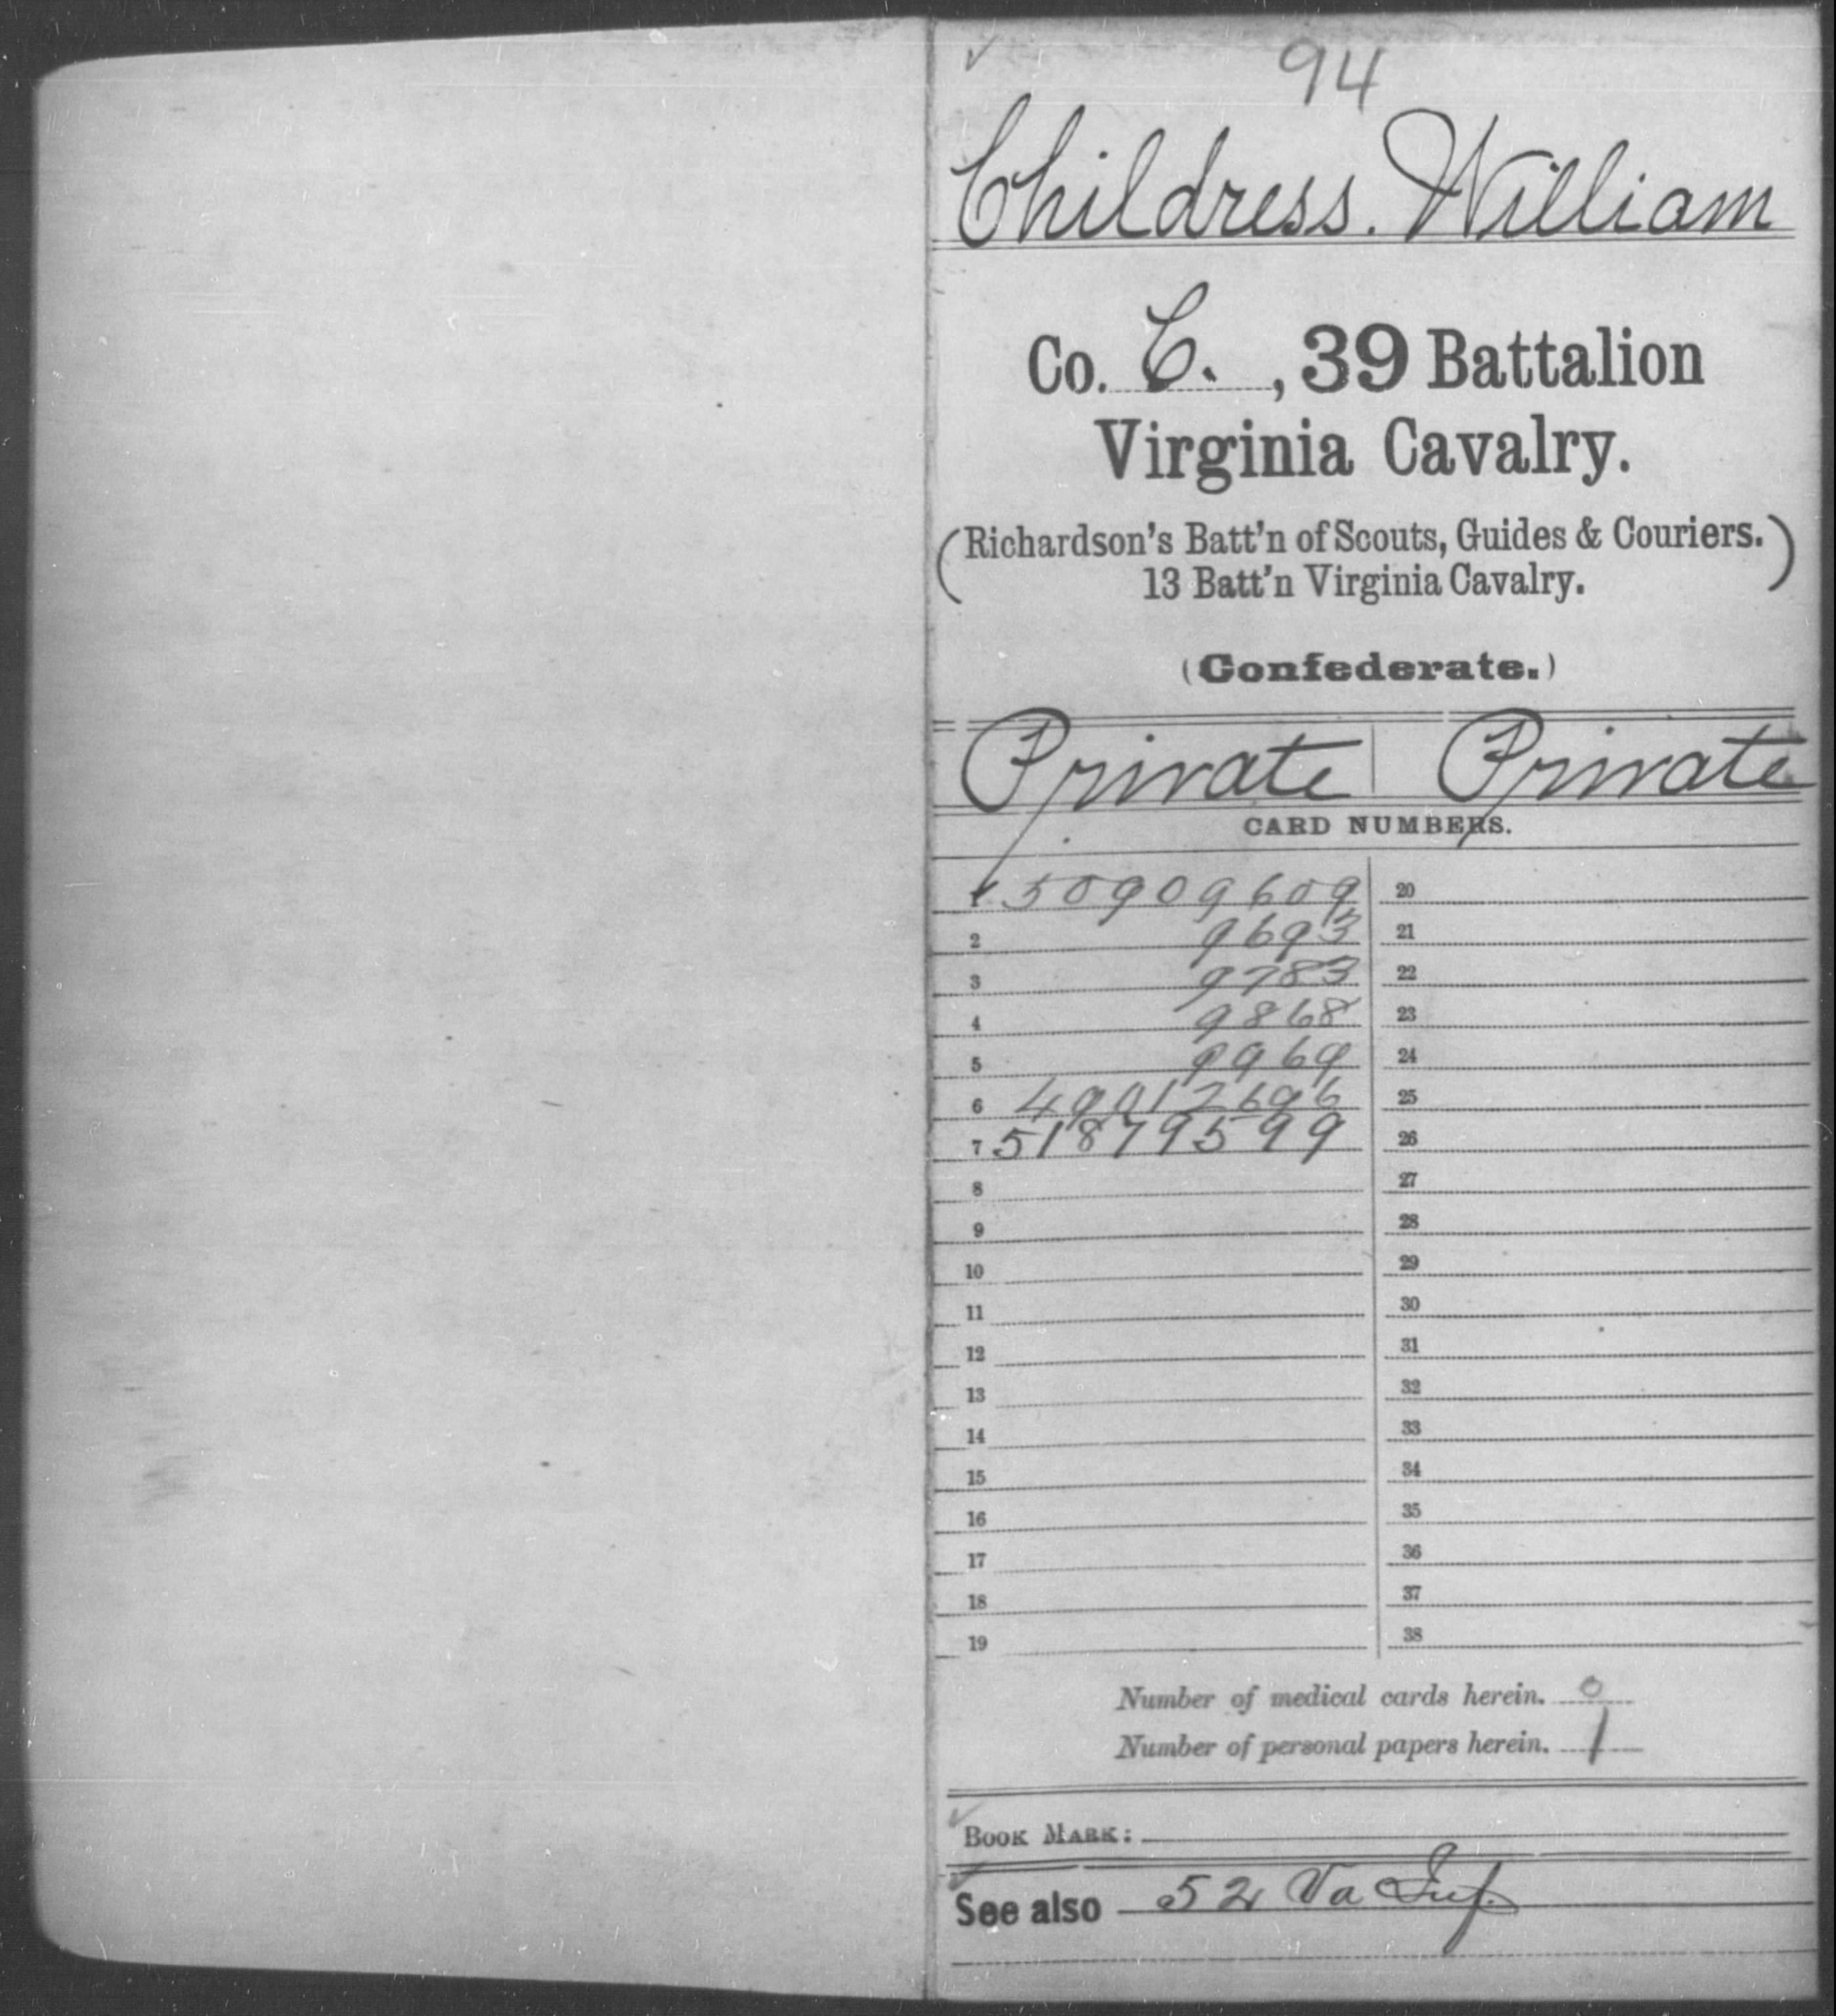 94
Childress. William
Co. C., 39 Battalion
Virginia Cavalry.
(Richardson's Batt'n of Scouts, Guides & Couriers.
13 Batt'n Virginia Cavalry.)
(Confederate.)
Private | Private
CARD NUMBERS.
1 50909609 20
2 9693 21
3 9783 22
4 9868 23
5 9969 24
6 49012696 25
7 51879599 26
8 27
9 28
10 29
11 30
12 31
13 32
14 33
15 34
16 35
17 36
18 37
19 38
Number of medical cards herein. 0
Number of personal papers herein. 1
BOOK MARK:
See also 52 Va Inf.